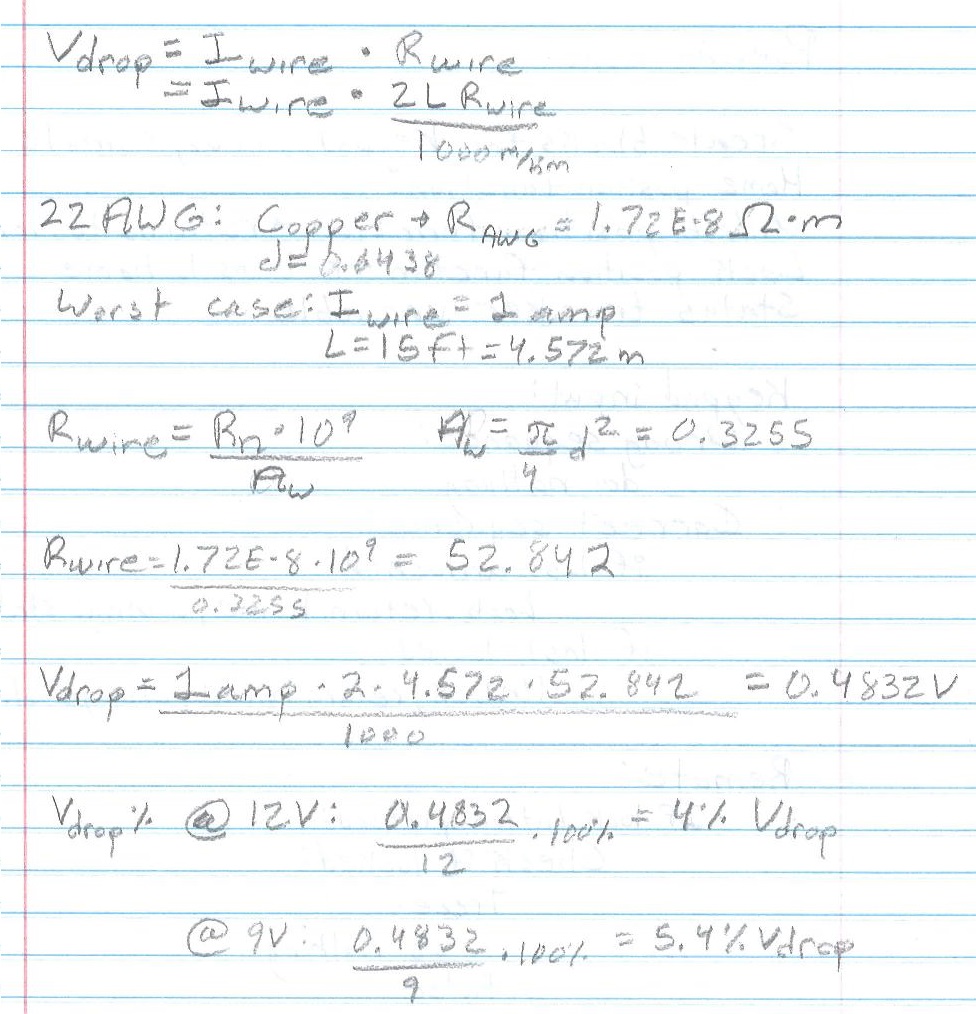 Vdrop = Iwire · Rwire
= Iwire · 2 L Rwire
1000 m/km
22 AWG: Copper → RAWG = 1.72E-8 Ω·m
d = 0.6438
Worst case: Iwire = 1 amp
L = 15 ft = 4.572 m
Rwire = Rn · 10⁹ Aw = π d² = 0.3255
Aw 4
Rwire = 1.72E-8 · 10⁹ = 52.842
0.3255
Vdrop = 1 amp · 2 · 4.572 · 52.842 = 0.4832V
1000
Vdrop % @ 12V: 0.4832 · 100% = 4% Vdrop
12
@ 9V: 0.4832 · 100% = 5.4% Vdrop
9